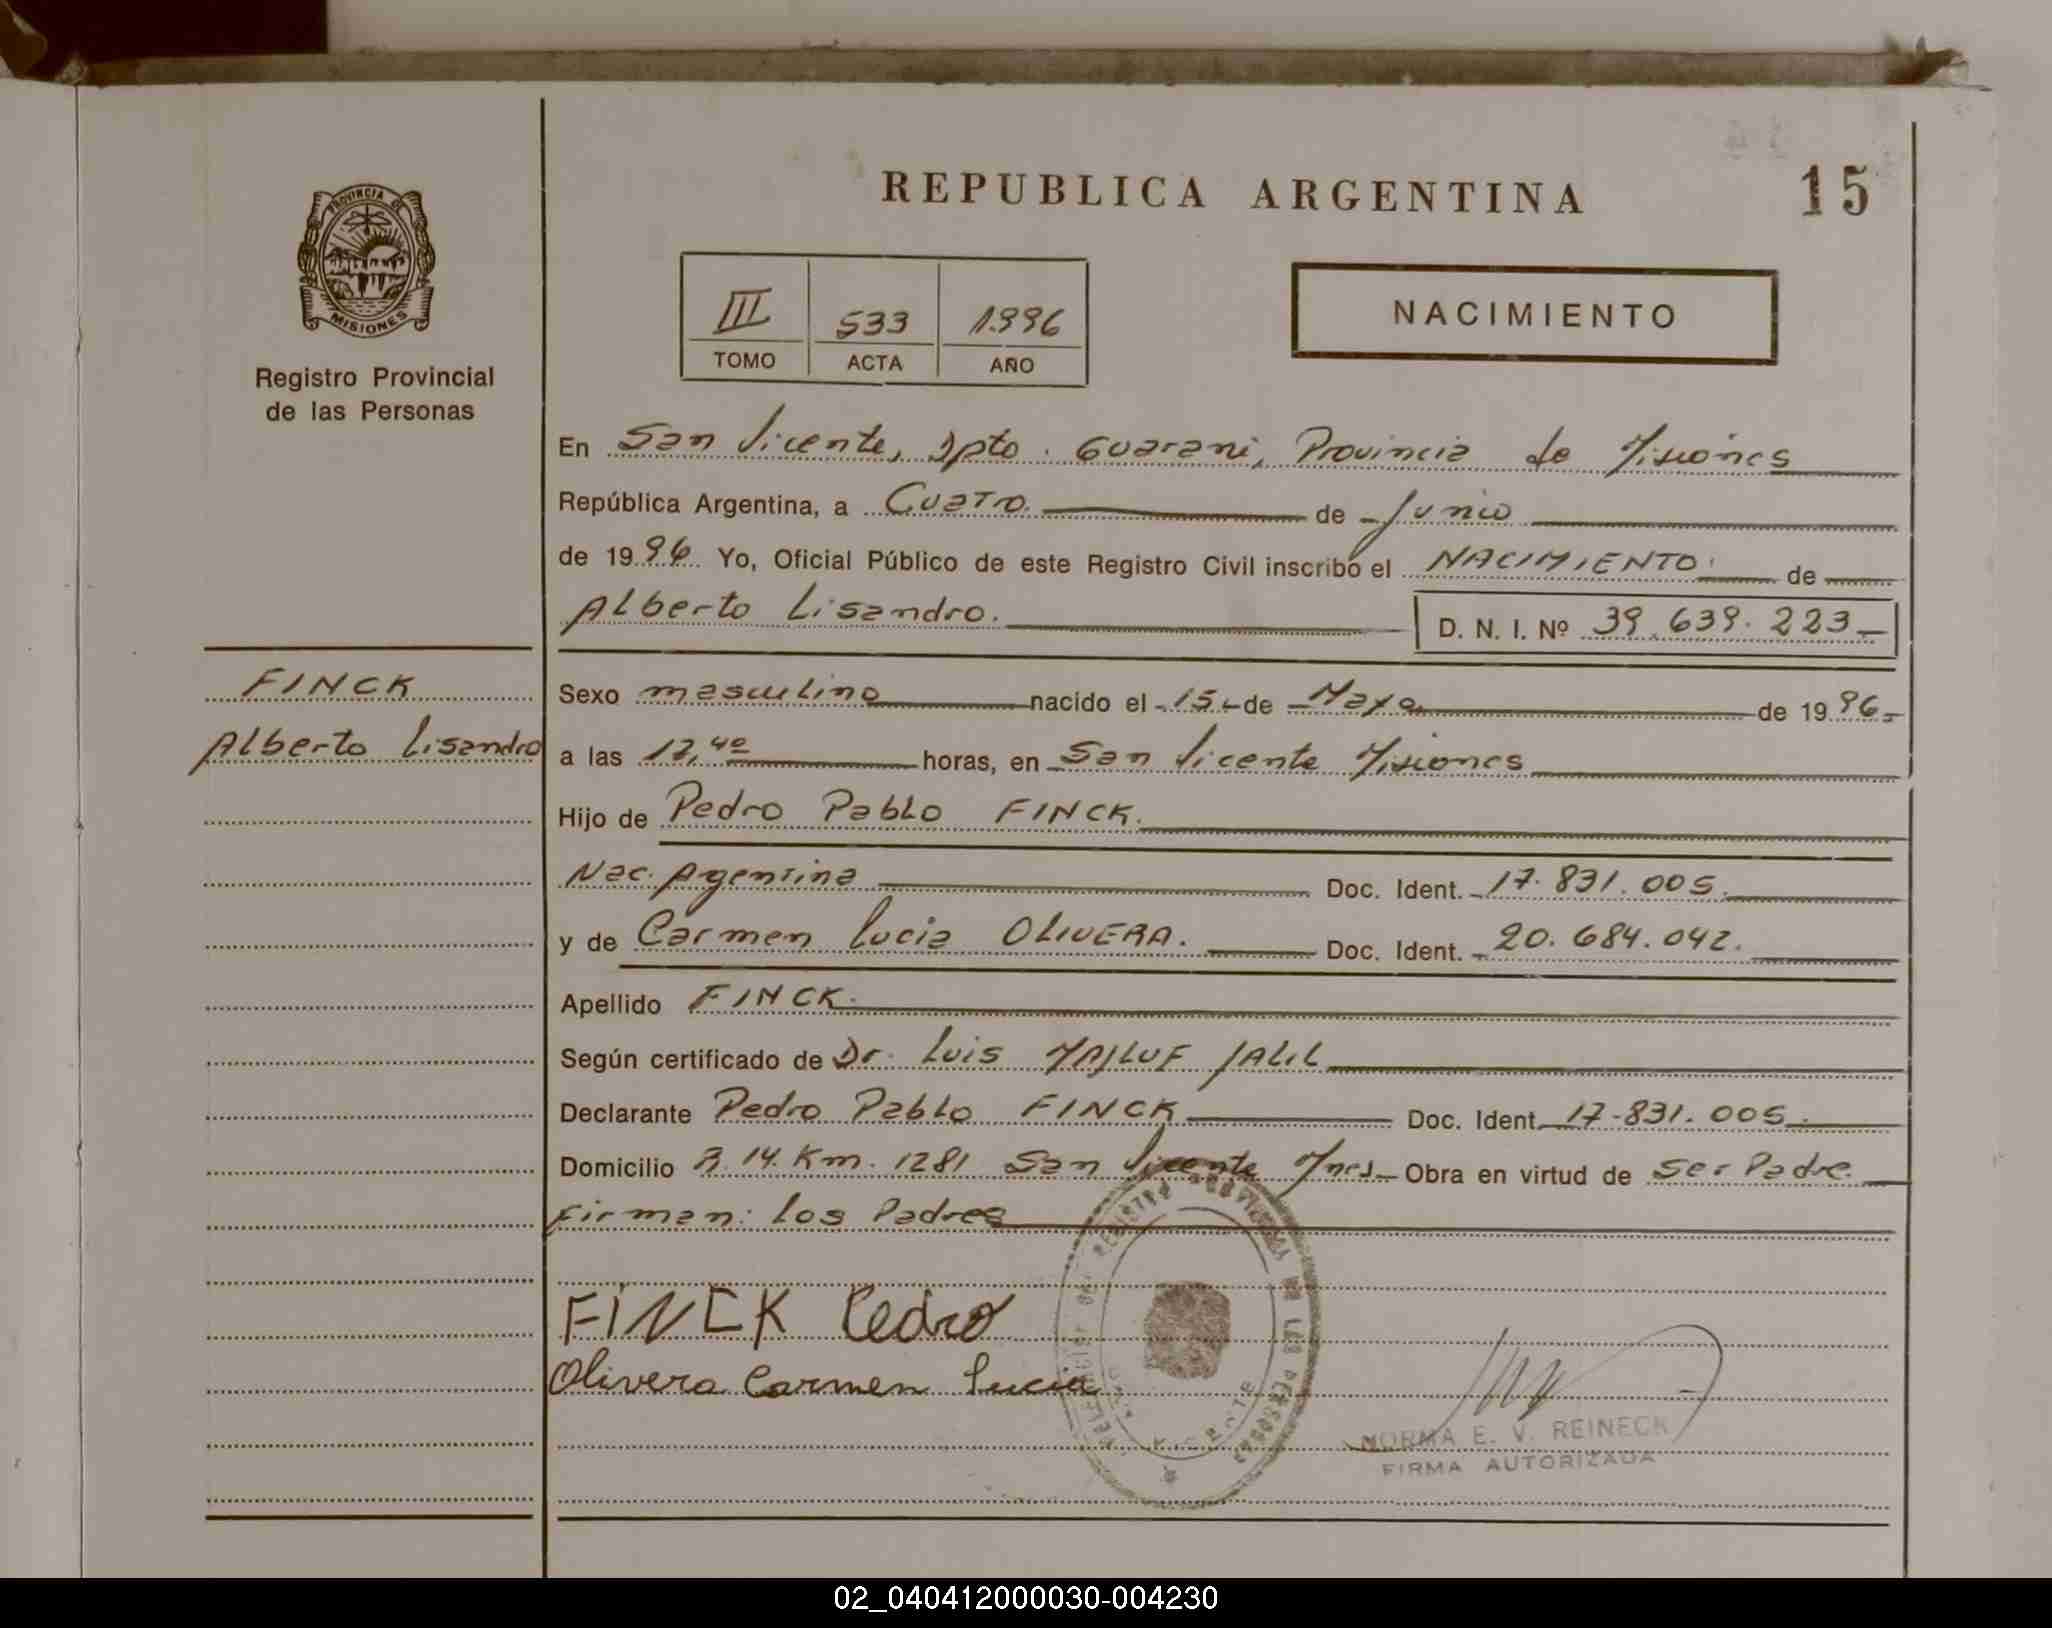 REPUBLICA ARGENTINA
15
PROVINCIA DE
MISIONES
Registro Provincial
de las Personas
III 533 1.996
TOMO ACTA AÑO
NACIMIENTO
En San Vicente, Dpto. Guarani, Provincia de Misiones
República Argentina, a Cuatro. de Junio
de 1996 Yo, Oficial Público de este Registro Civil inscribo el NACIMIENTO. de
Alberto Lisandro. D. N. I. Nº 39.639.223
FINCK
Alberto Lisandro
Sexo masculino nacido el 15 de Mayo de 1996
a las 17,40 horas, en San Vicente Misiones
Hijo de Pedro Pablo FINCK.
Nac. Argentina Doc. Ident. 17.831.005.
y de Carmen Lucia OLIVERA. Doc. Ident. 20.684.042.
Apellido FINCK.
Según certificado de Dr. Luis MAJLUF JALIL
Declarante Pedro Pablo FINCK Doc. Ident. 17.831.005.
Domicilio R. 14. Km. 1281 San Vicente Mnes Obra en virtud de ser Padre.
Firman: los Padres
FINCK Pedro
Olivera Carmen Lucia
REGISTRO PROVINCIAL DE LAS PERSONAS
NORMA E. V. REINECK
FIRMA AUTORIZADA
02_040412000030-004230